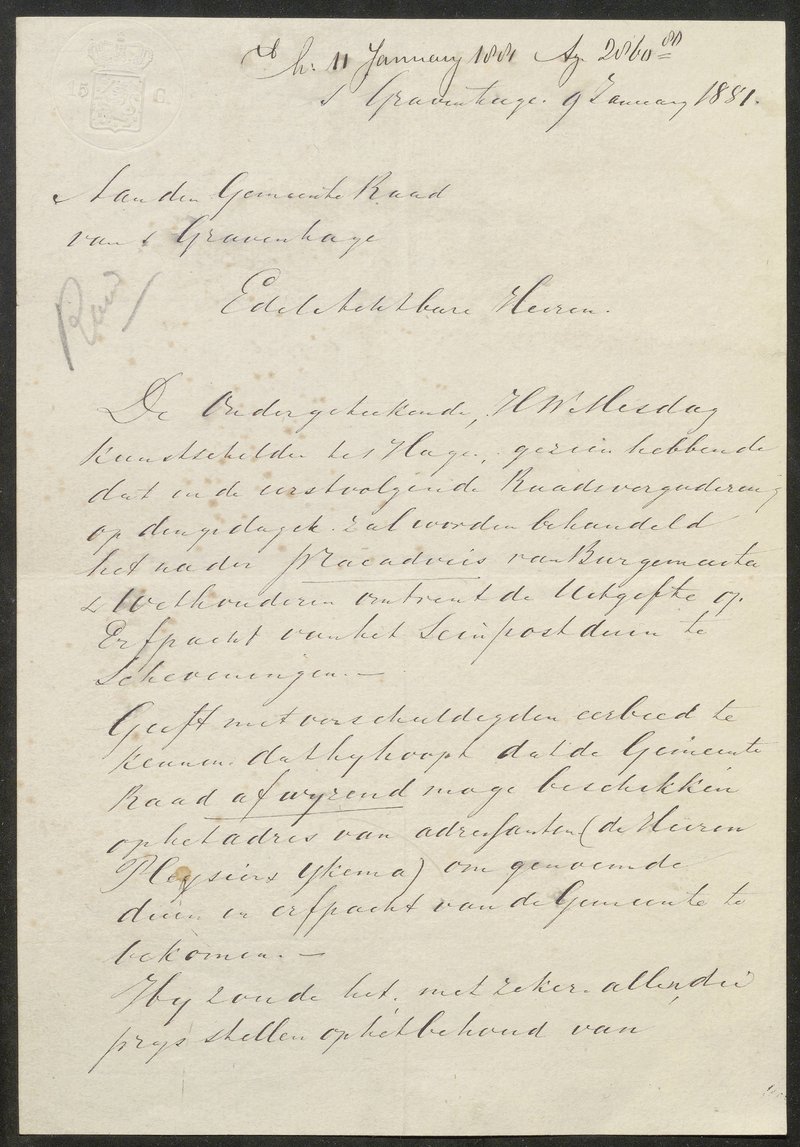 11 January 1881
s Gravenhage 9 January 1881.
15 C.
Aan den Gemeente Raad
van s Gravenhage
Raad
Edel Achtbare Heeren.
De Ondergeteekende, HW Mesdag
Kunstschilder te s Hage, gezien hebbende
dat in de eerstvolgende Raadsvergadering
op dingsdag ek. zal worden behandeld
het nader praeadvies van Burgemeester
& Wethouderen omtrent de Uitgifte op
Erfpacht van het Seinpostduin te
Scheveningen. —
Geeft met verschuldigden eerbied te
kennen. dat hy hoopt dat de Gemeente
Raad afwyzend moge beschikken
op het adres van adressanten (de Heeren
Pleysier & Ykema) om genoemde
duin in erfpacht van de Gemeente te
bekomen. —
Hy zoude het. met zeker allen, die
prys stellen op het behoud van